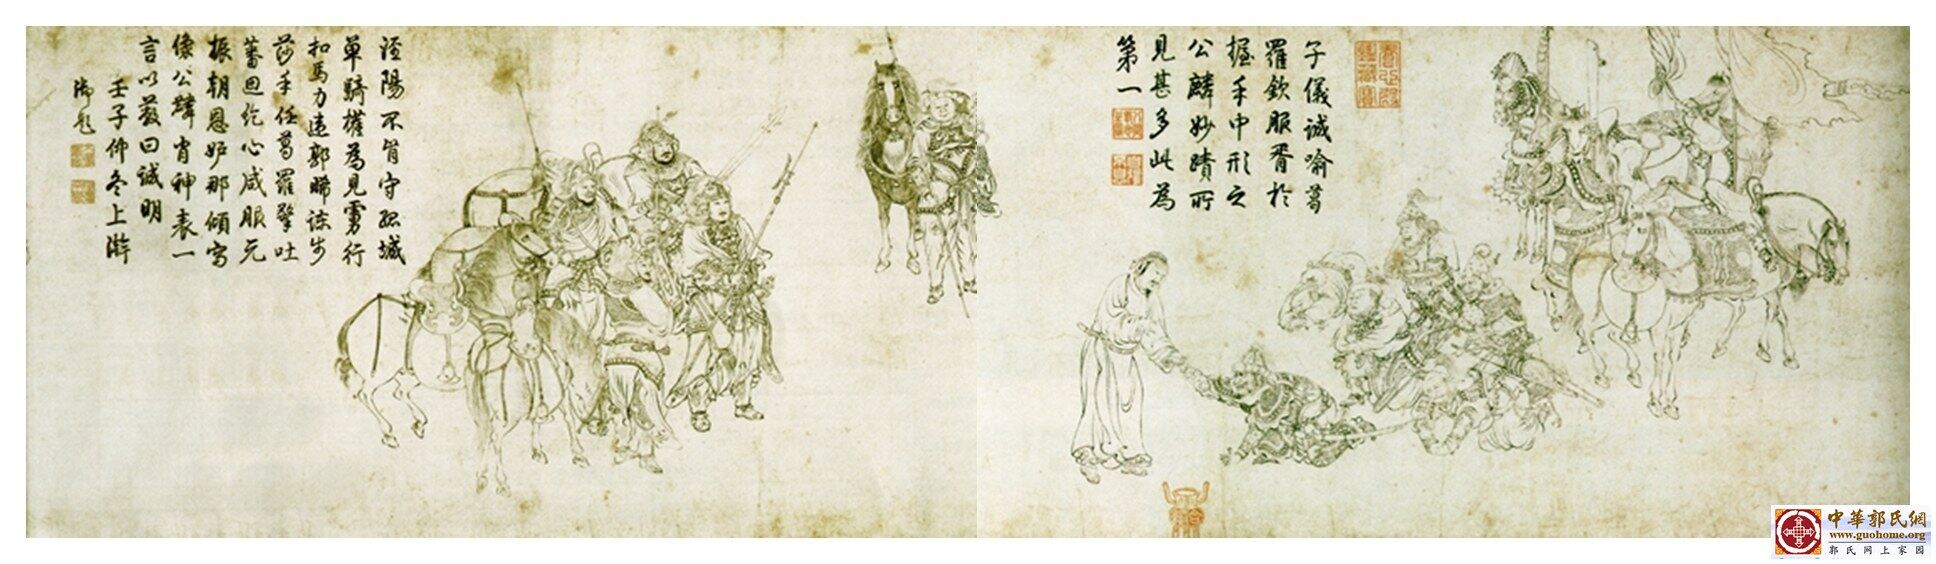 子儀誠喻葛
羅欽服胥於
握手中形之
公麟妙蹟所
見甚多此為
第一
涇陽不肯守孤城
單騎權為見虜行
扣馬力違郭晞諫步
莎手任葛羅擎吐
蕃迴紇心咸服元
振朝恩妒那傾寫
像公麟肖神表一
言以蔽曰誠明
壬子仲冬上澣
御題
養心殿鑑藏寶
中華郭氏網
www.guohome.org
郭氏网上家园